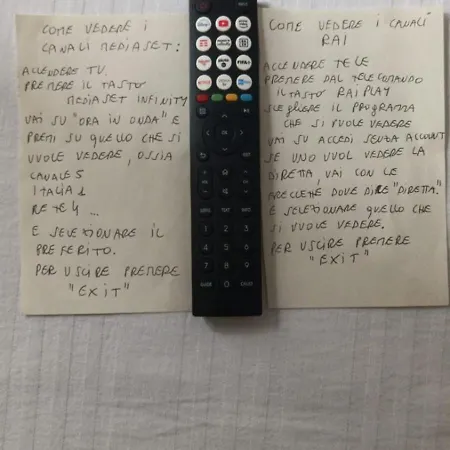 COME VEDERE I
CANALI MEDIASET:
ACCENDERE TV.
PREMERE IL TASTO
MEDIASET INFINITY
VAI SU "ORA IN ONDA" E
PREMI SU QUELLO CHE SI
VUOLE VEDERE, OSSIA
CANALE 5
ITALIA 1
RETE 4 ...
E SELEZIONARE IL
PREFERITO.
PER USCIRE PREMERE
"EXIT"
COME VEDERE I CANALI
RAI
ACCENDERE TELE
PREMERE DAL TELECOMANDO
IL TASTO RAI PLAY
SCEGLIERE IL PROGRAMMA
CHE SI VUOLE VEDERE
VAI SU ACCEDI SENZA ACCOUNT
SE UNO VUOL VEDERE LA
DIRETTA, VAI CON LE
FRECCETTE DOVE DICE "DIRETTA"
E SELEZIONARE QUELLO CHE
SI VUOLE VEDERE.
PER USCIRE PREMERE
"EXIT"
1 2 3
4 5 6
7 8 9
0